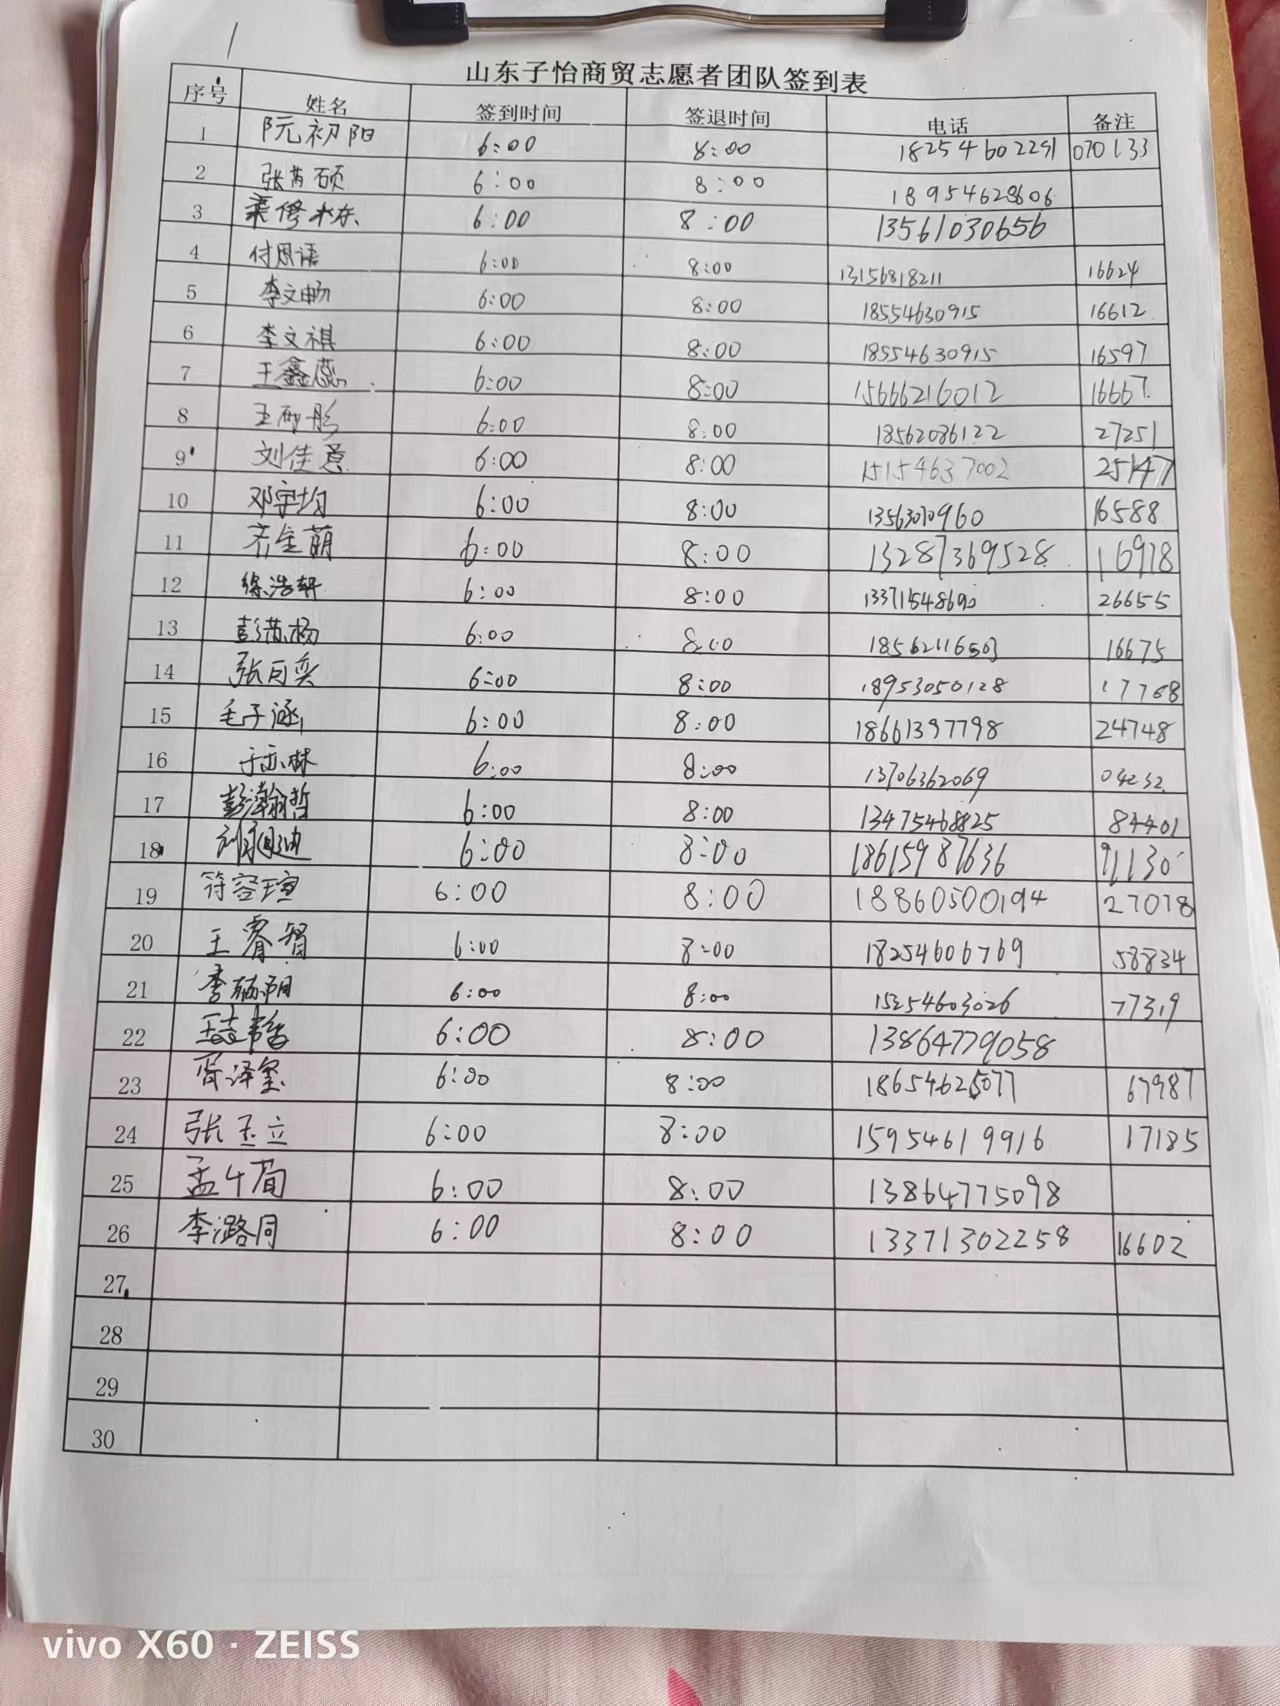 山东子怡商贸志愿者团队签到表
序号 姓名 签到时间 签退时间 电话 备注
1 阮初阳 6:00 8:00 18254602291 070133
2 张芮硕 6:00 8:00 18954628606
3 6:00 8:00 13561030656
4 付思语 6:00 8:00 13156818211 16624
5 李文畅 6:00 8:00 18554630915 16612
6 李文祺 6:00 8:00 18554630915 16597
7 王鑫蕊 6:00 8:00 15666216012 16667
8 6:00 8:00 18562086122 27251
9 刘佳意 6:00 8:00 15154637002 25147
10 邓宇均 6:00 8:00 13563010960 16588
11 齐圣萌 6:00 8:00 13287369528 16978
12 徐浩轩 6:00 8:00 13371548690 26655
13 彭苏杨 6:00 8:00 18562116503 16675
14 张月奕 6:00 8:00 18953050128 17768
15 毛子涵 6:00 8:00 18661397798 24748
16 于亦林 6:00 8:00 13706362069
17 彭瀚哲 6:00 8:00 13475468825 84401
18 6:00 8:00 18615987636 91130
19 符容瑄 6:00 8:00 18860500194 27078
20 王睿智 6:00 8:00 18254606769 58834
21 6:00 8:00 15254603026 77319
22 6:00 8:00 13864779058
23 6:00 8:00 18654625077 67987
24 张玉立 6:00 8:00 15954619916 17185
25 6:00 8:00 13864775098
26 李潞同 6:00 8:00 13371302258 16602
27
28
29
30
vivo X60 · ZEISS